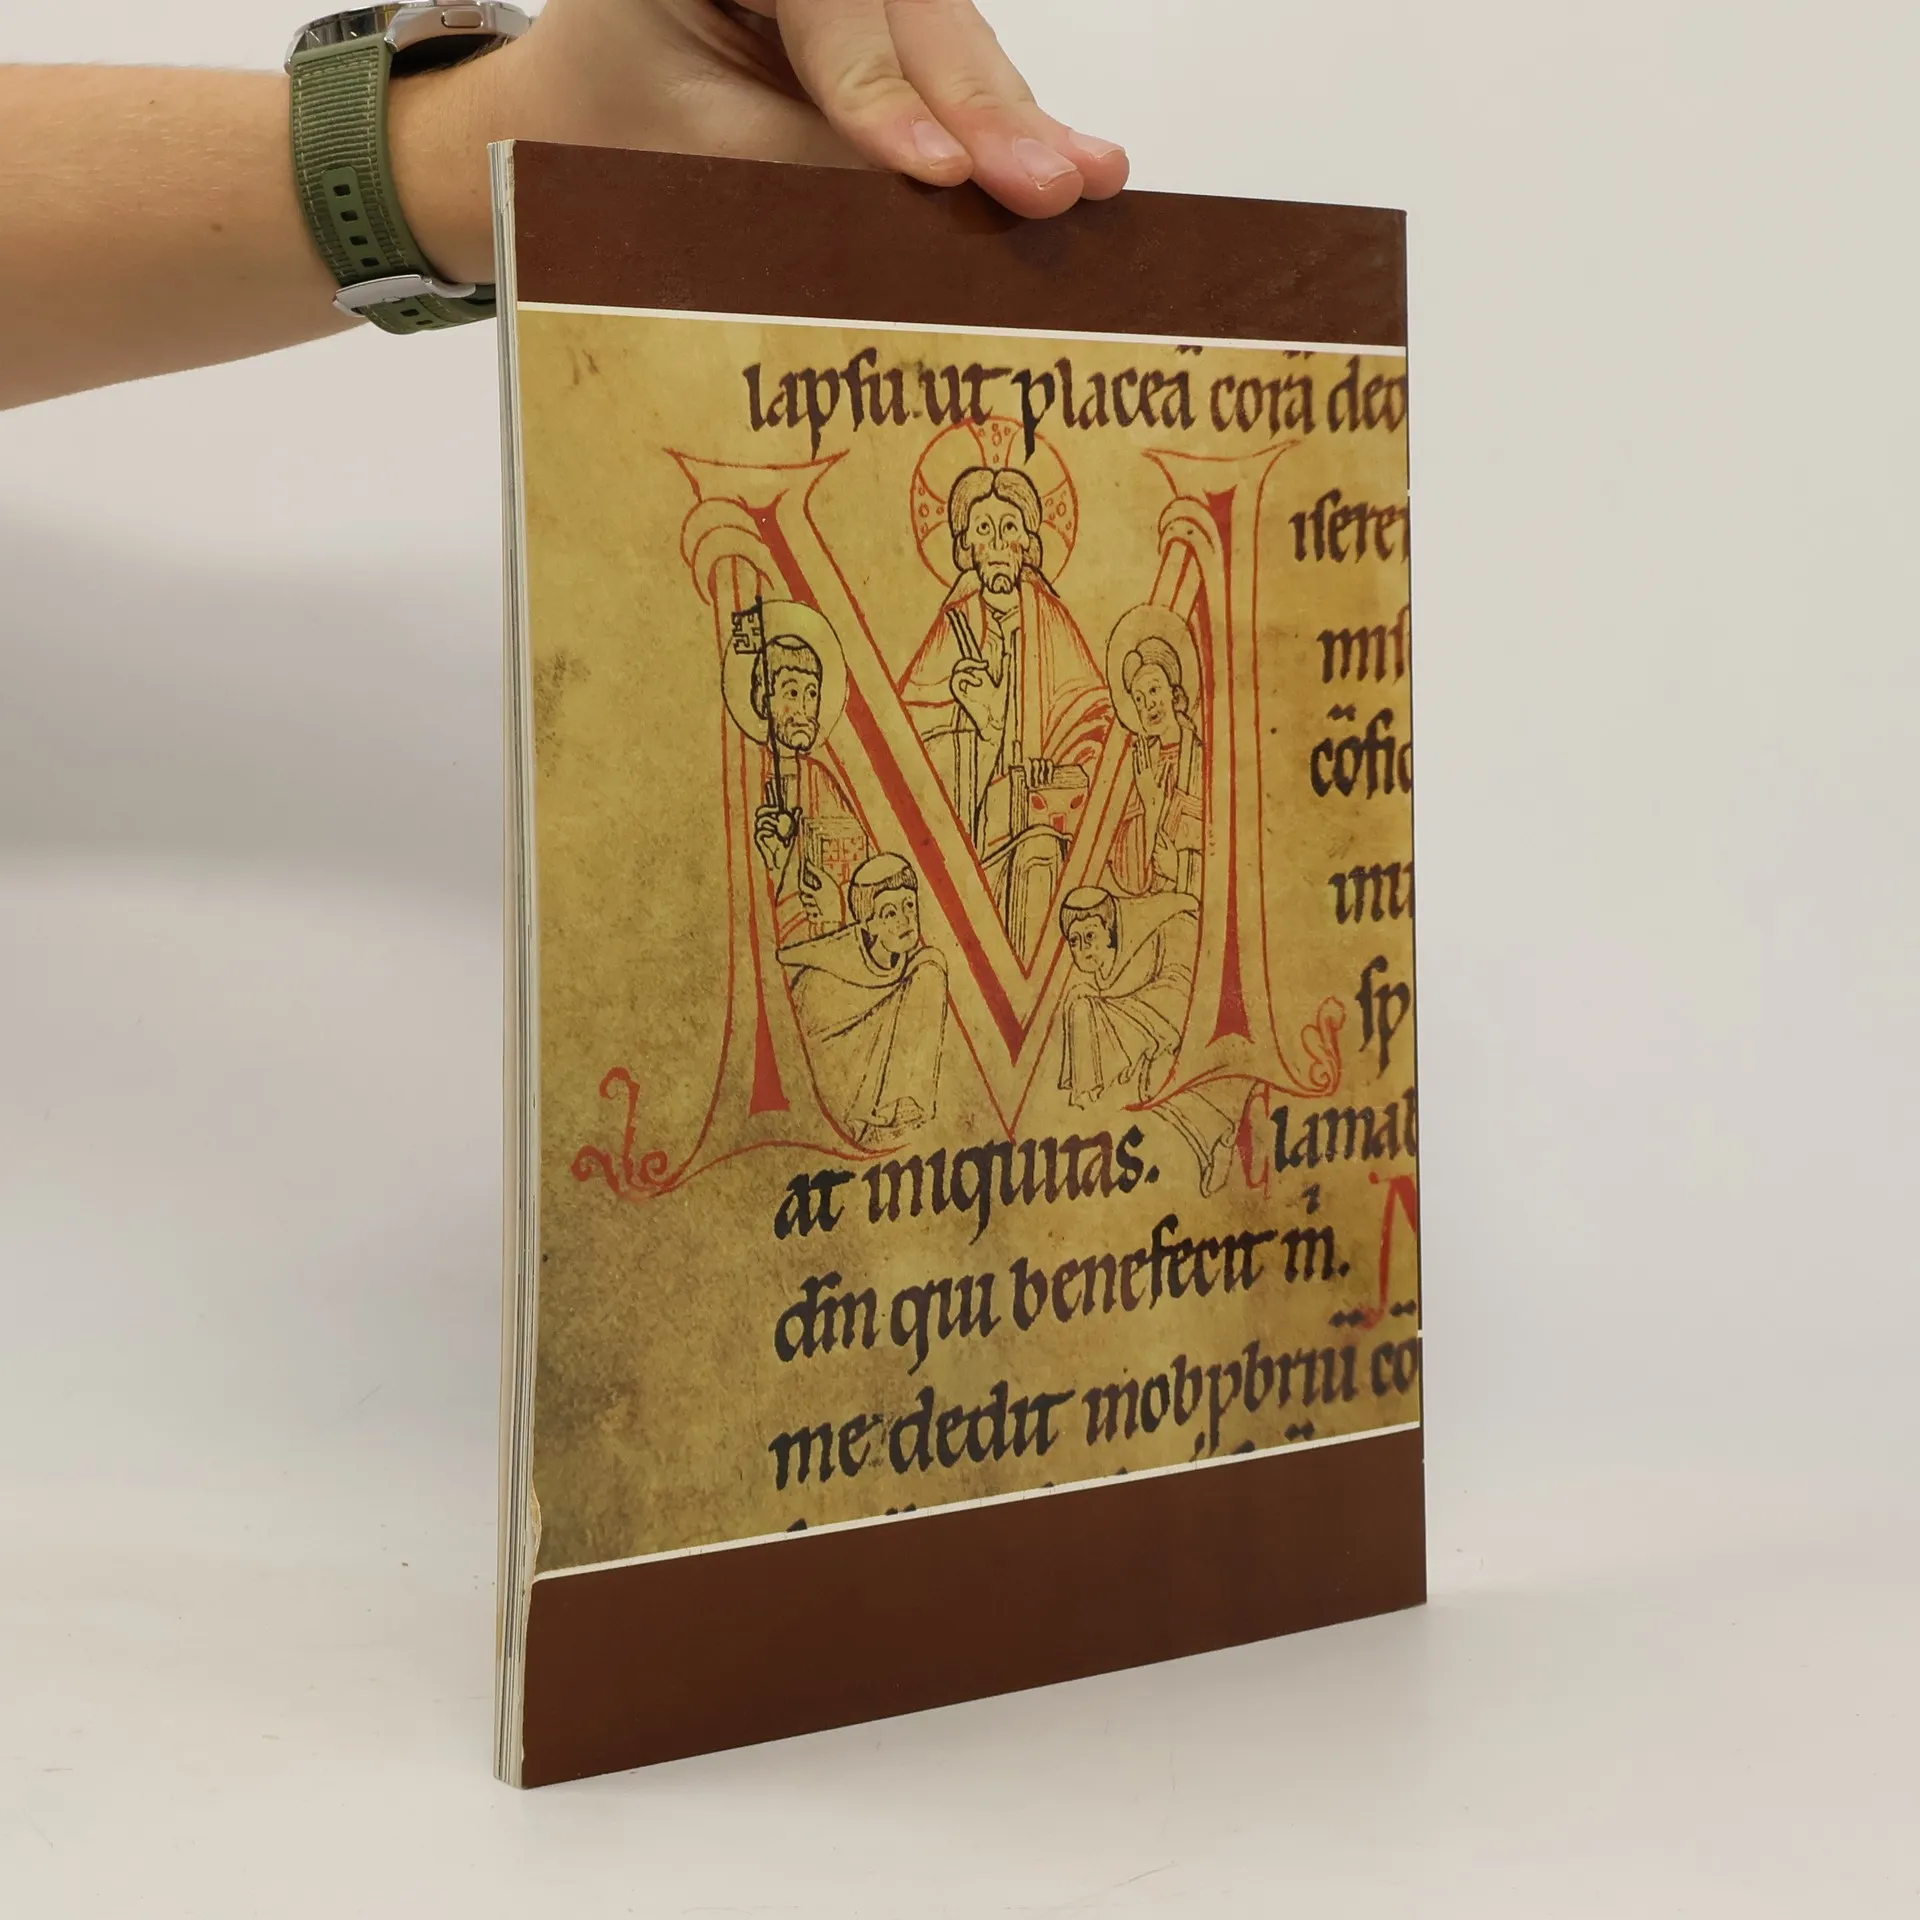 lapsu. ut placeā corā deo
M iserer
mis
cōfid
inu
sp
at iniquitas. Clamab
dm̄ qui benefecit m̄.
me dedit mobpbriū cō